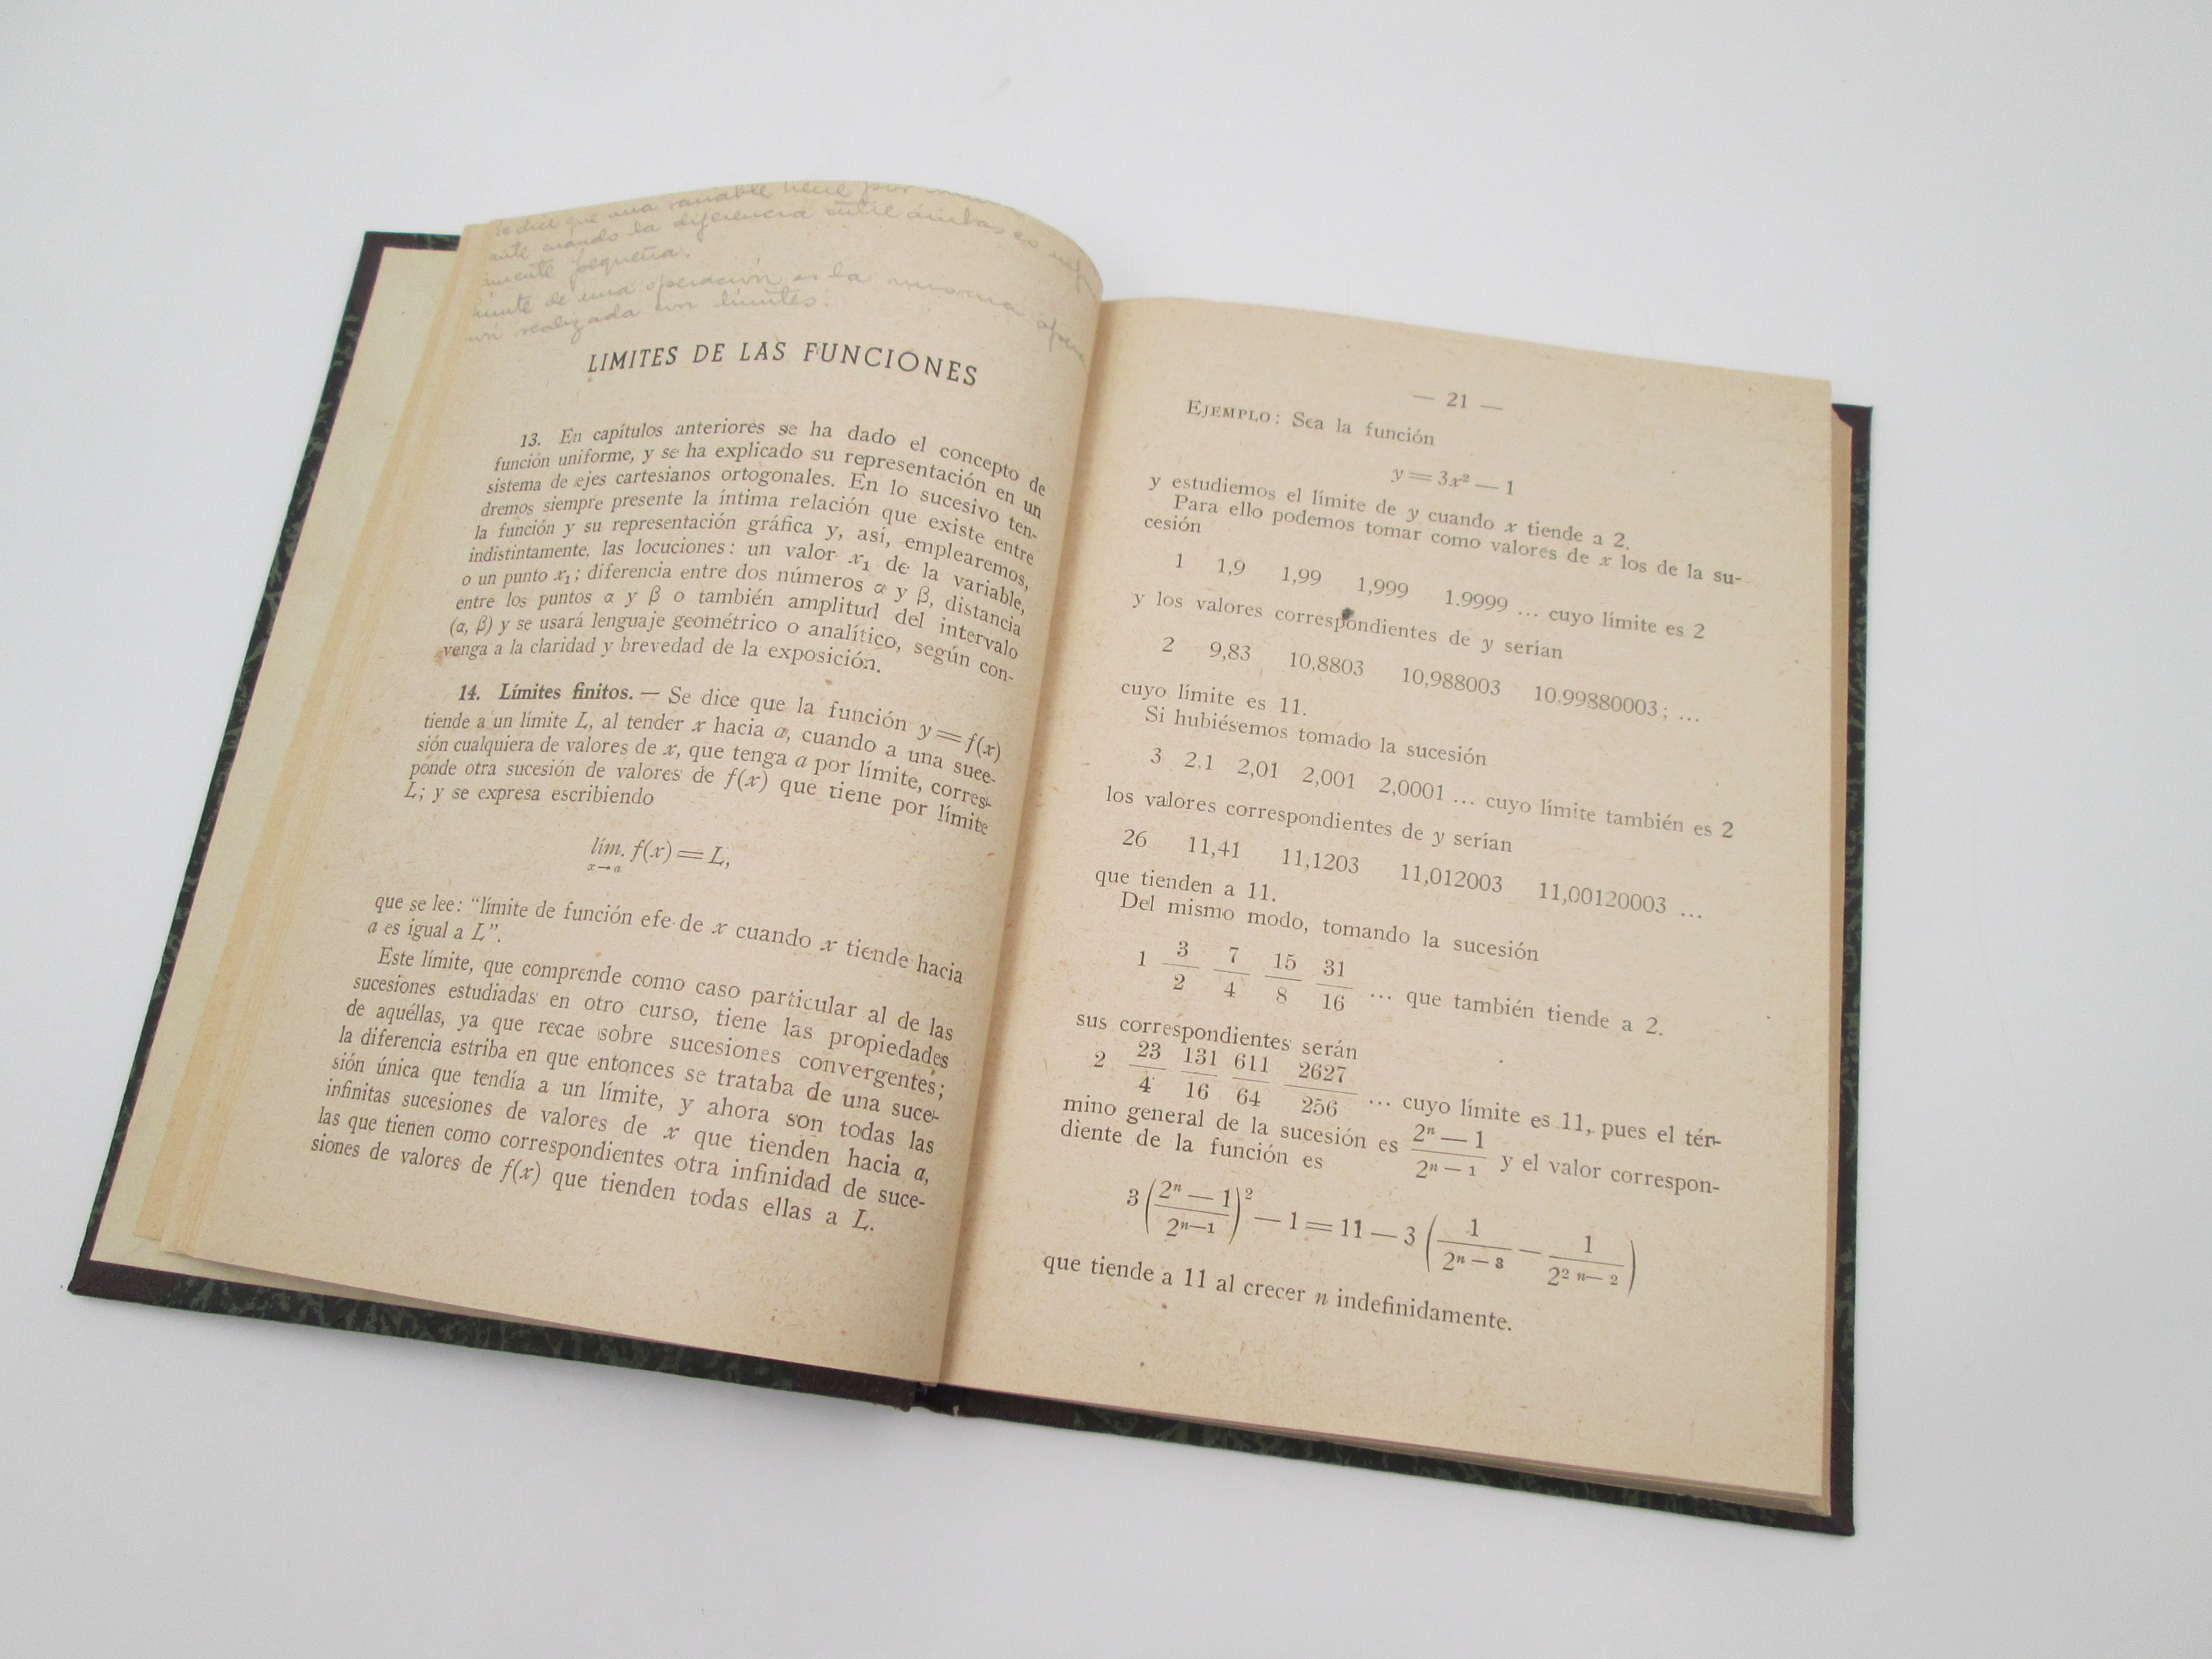 se dice que una variable tiene por
ante cuando la diferencia entre ambas es
mente pequeña.
límite de una operación es la misma opera
realizada con límites.
LIMITES DE LAS FUNCIONES
13. En capítulos anteriores se ha dado el concepto de
función uniforme, y se ha explicado su representación en un
sistema de ejes cartesianos ortogonales. En lo sucesivo ten-
dremos siempre presente la íntima relación que existe entre
la función y su representación gráfica y, así, emplearemos,
indistintamente, las locuciones: un valor x₁ de la variable,
o un punto x₁; diferencia entre dos números α y β, distancia
entre los puntos α y β o también amplitud del intervalo
(α, β) y se usará lenguaje geométrico o analítico, según con-
venga a la claridad y brevedad de la exposición.
14. Límites finitos. — Se dice que la función y = f(x)
tiende a un límite L, al tender x hacia a, cuando a una suce-
sión cualquiera de valores de x, que tenga a por límite, corres-
ponde otra sucesión de valores de f(x) que tiene por límite
L; y se expresa escribiendo
lím. f(x) = L,
x→a
que se lee: "límite de función efe de x cuando x tiende hacia
a es igual a L".
Este límite, que comprende como caso particular al de las
sucesiones estudiadas en otro curso, tiene las propiedades
de aquéllas, ya que recae sobre sucesiones convergentes;
la diferencia estriba en que entonces se trataba de una suce-
sión única que tendía a un límite, y ahora son todas las
infinitas sucesiones de valores de x que tienden hacia a,
las que tienen como correspondientes otra infinidad de suce-
siones de valores de f(x) que tienden todas ellas a L.
— 21 —
EJEMPLO: Sea la función
y = 3x² — 1
y estudiemos el límite de y cuando x tiende a 2.
Para ello podemos tomar como valores de x los de la su-
cesión
1 1,9 1,99 1,999 1.9999 ... cuyo límite es 2
y los valores correspondientes de y serían
2 9,83 10,8803 10,988003 10.99880003; ...
cuyo límite es 11.
Si hubiésemos tomado la sucesión
3 2.1 2,01 2,001 2,0001 ... cuyo límite también es 2
los valores correspondientes de y serían
26 11,41 11,1203 11,012003 11,00120003 ...
que tienden a 11.
Del mismo modo, tomando la sucesión
1 3/2 7/4 15/8 31/16 ... que también tiende a 2.
sus correspondientes serán
2 23/4 131/16 611/64 2627/256 ... cuyo límite es 11, pues el tér-
mino general de la sucesión es (2ⁿ — 1)/(2ⁿ⁻¹) y el valor correspon-
diente de la función es
3 ((2ⁿ — 1)/(2ⁿ⁻¹))² — 1 = 11 — 3 (1/(2ⁿ⁻³) — 1/(2²ⁿ⁻²))
que tiende a 11 al crecer n indefinidamente.